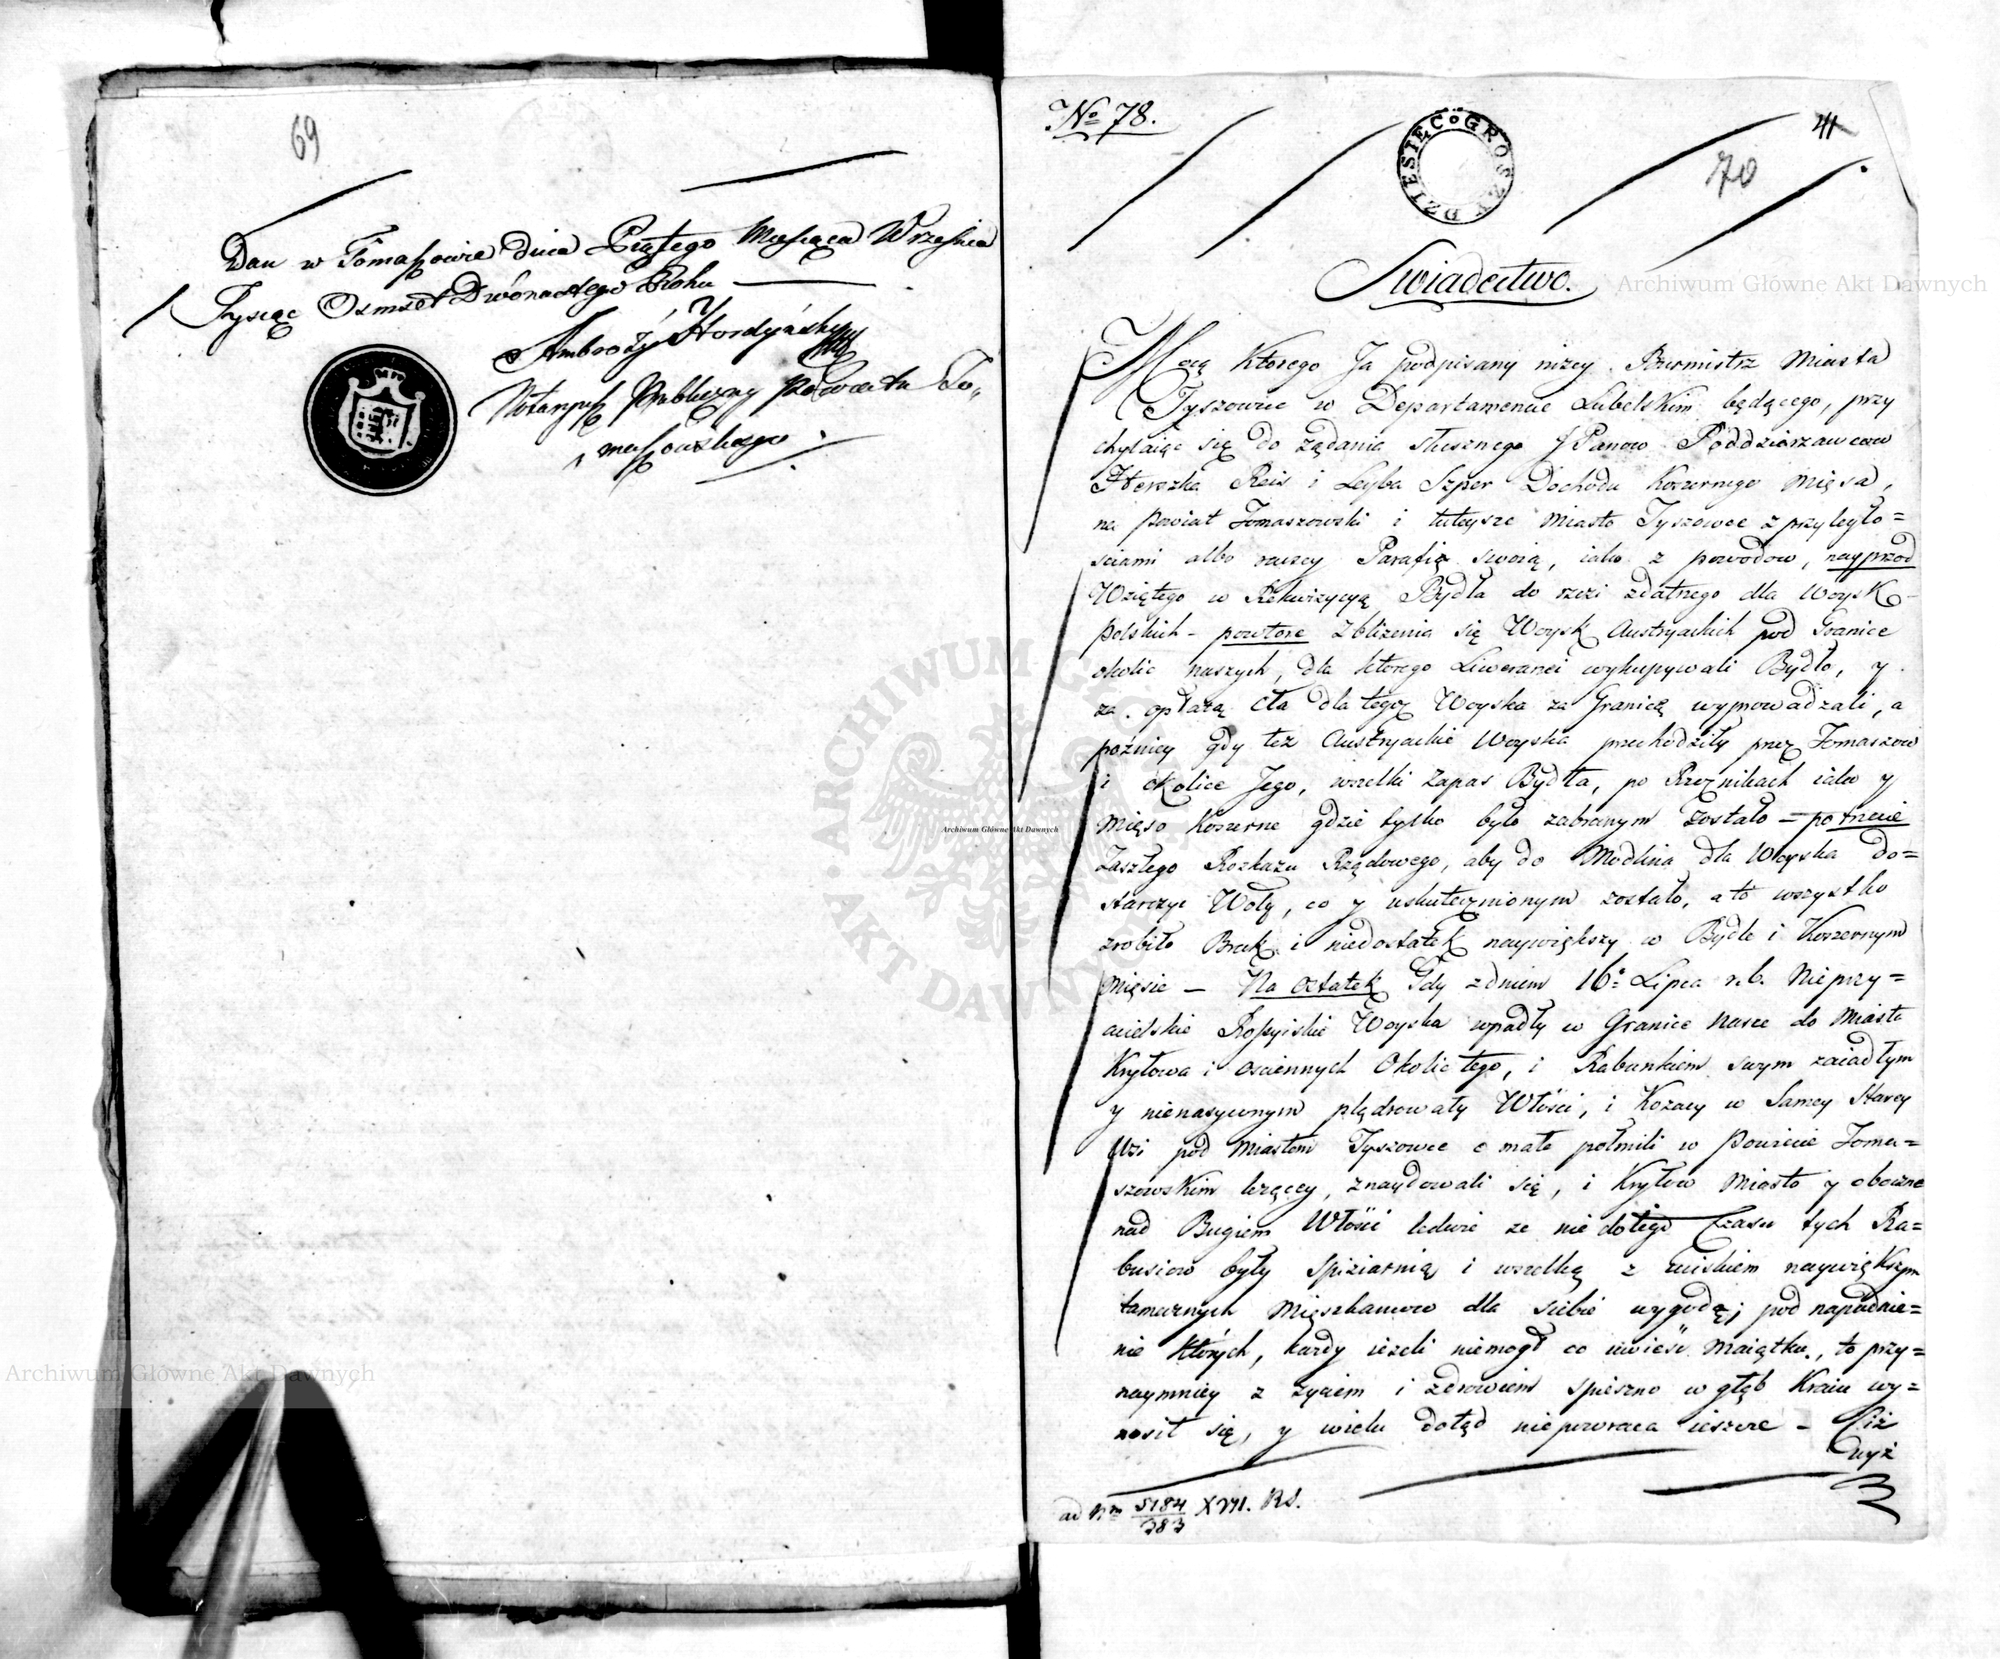 69
Dan w Tomaszowie Dnia Piątego Miesiąca Września
Tysiąc Osmset Dwónastego Roku
Ambroży Hordyński
Notaryusz Publiczny Powiatu To„
maszowskiego
No 78.
DZIESIĘC GROSZY
41
70
Swiadectwo.
Mocą Ktorego Ja podpisany niżey Burmistrz Miasta
Tyszowiec w Departamencie Lubelskim będącego, przy
chylaiąc się do żądania słusznego JPanow Poddzierzawcow
Herszka Reis i Leyba Szper Dochodu Koszernego Mięsa,
na Powiat Tomaszowski i tuteysze Miasto Tyszowce z przyległo=
sciami albo raczey Parafią swoią, iako z powodow, nayprzod
Wziętego w Rekwizycyą Bydła do rzezi zdatnego dla Woysk
Polskich - powtore Zbliżenia się Woysk Austryackich pod Granice
okolic naszych, dla ktorego Liweranci wykupywali Bydło, y
za opłatą Cła dla tegoż Woyska za Granicę wyprowadzali, a
poźniey gdy też Austryackie Woyska przechodziły przez Tomaszow
i okolice Jego, wszelki zapas Bydła, po Rzeznikach iako y
Mięso Koszerne gdzie tylko było zabranym zostało - potrzecie
Zaszłego Rozkazu Rządowego, aby do Modlina dla Woyska do=
starczyc Woły, co y uskutecznionym zostało, a to wszystko
zrobiło Brak i niedostatek naywiększy w Bydle i Koszernym
Mięsie - Na ostatek Gdy z dniem 16o Lipca r.b. Nieprzy=
acielskie Rossyiskie Woyska wpadły w Granice Nasze do Miasta
Kryłowa i osciennych Okolic tego, i Rabunkiem swym zaiadłym
y nienasyconym plądrowały Włości, i Kozacy w Samey Starey
Wsi pod Miastem Tyszowce o małe połmili w Powiecie Toma=
szowskim leżącey, znaydowali się, i Kryłow Miasto y oboczne
nad Bugiem Włości ledwie ze nie do tego Czasu tych Ra=
busiow były Spiziarnią i wszelką z uciskiem naywiększym
tamecznych Mięszkancow dla siebie wygodą; pod napadnie=
nie Których, kazdy iezeli niemogł co uwieść Maiątku, to przy=
naymniey z zyciem i zdrowiem spieszno w głąb Kraiu wy=
nosił się, y wielu dotąd niepowraca ieszcze - Ciż
wyż
ad Nm 5184/383 XVI. RS.
Archiwum Główne Akt Dawnych
Archiwum Główne Akt Dawnych
Archiwum Główne Akt Dawnych
ARCHIWUM GŁÓWNE AKT DAWNYCH